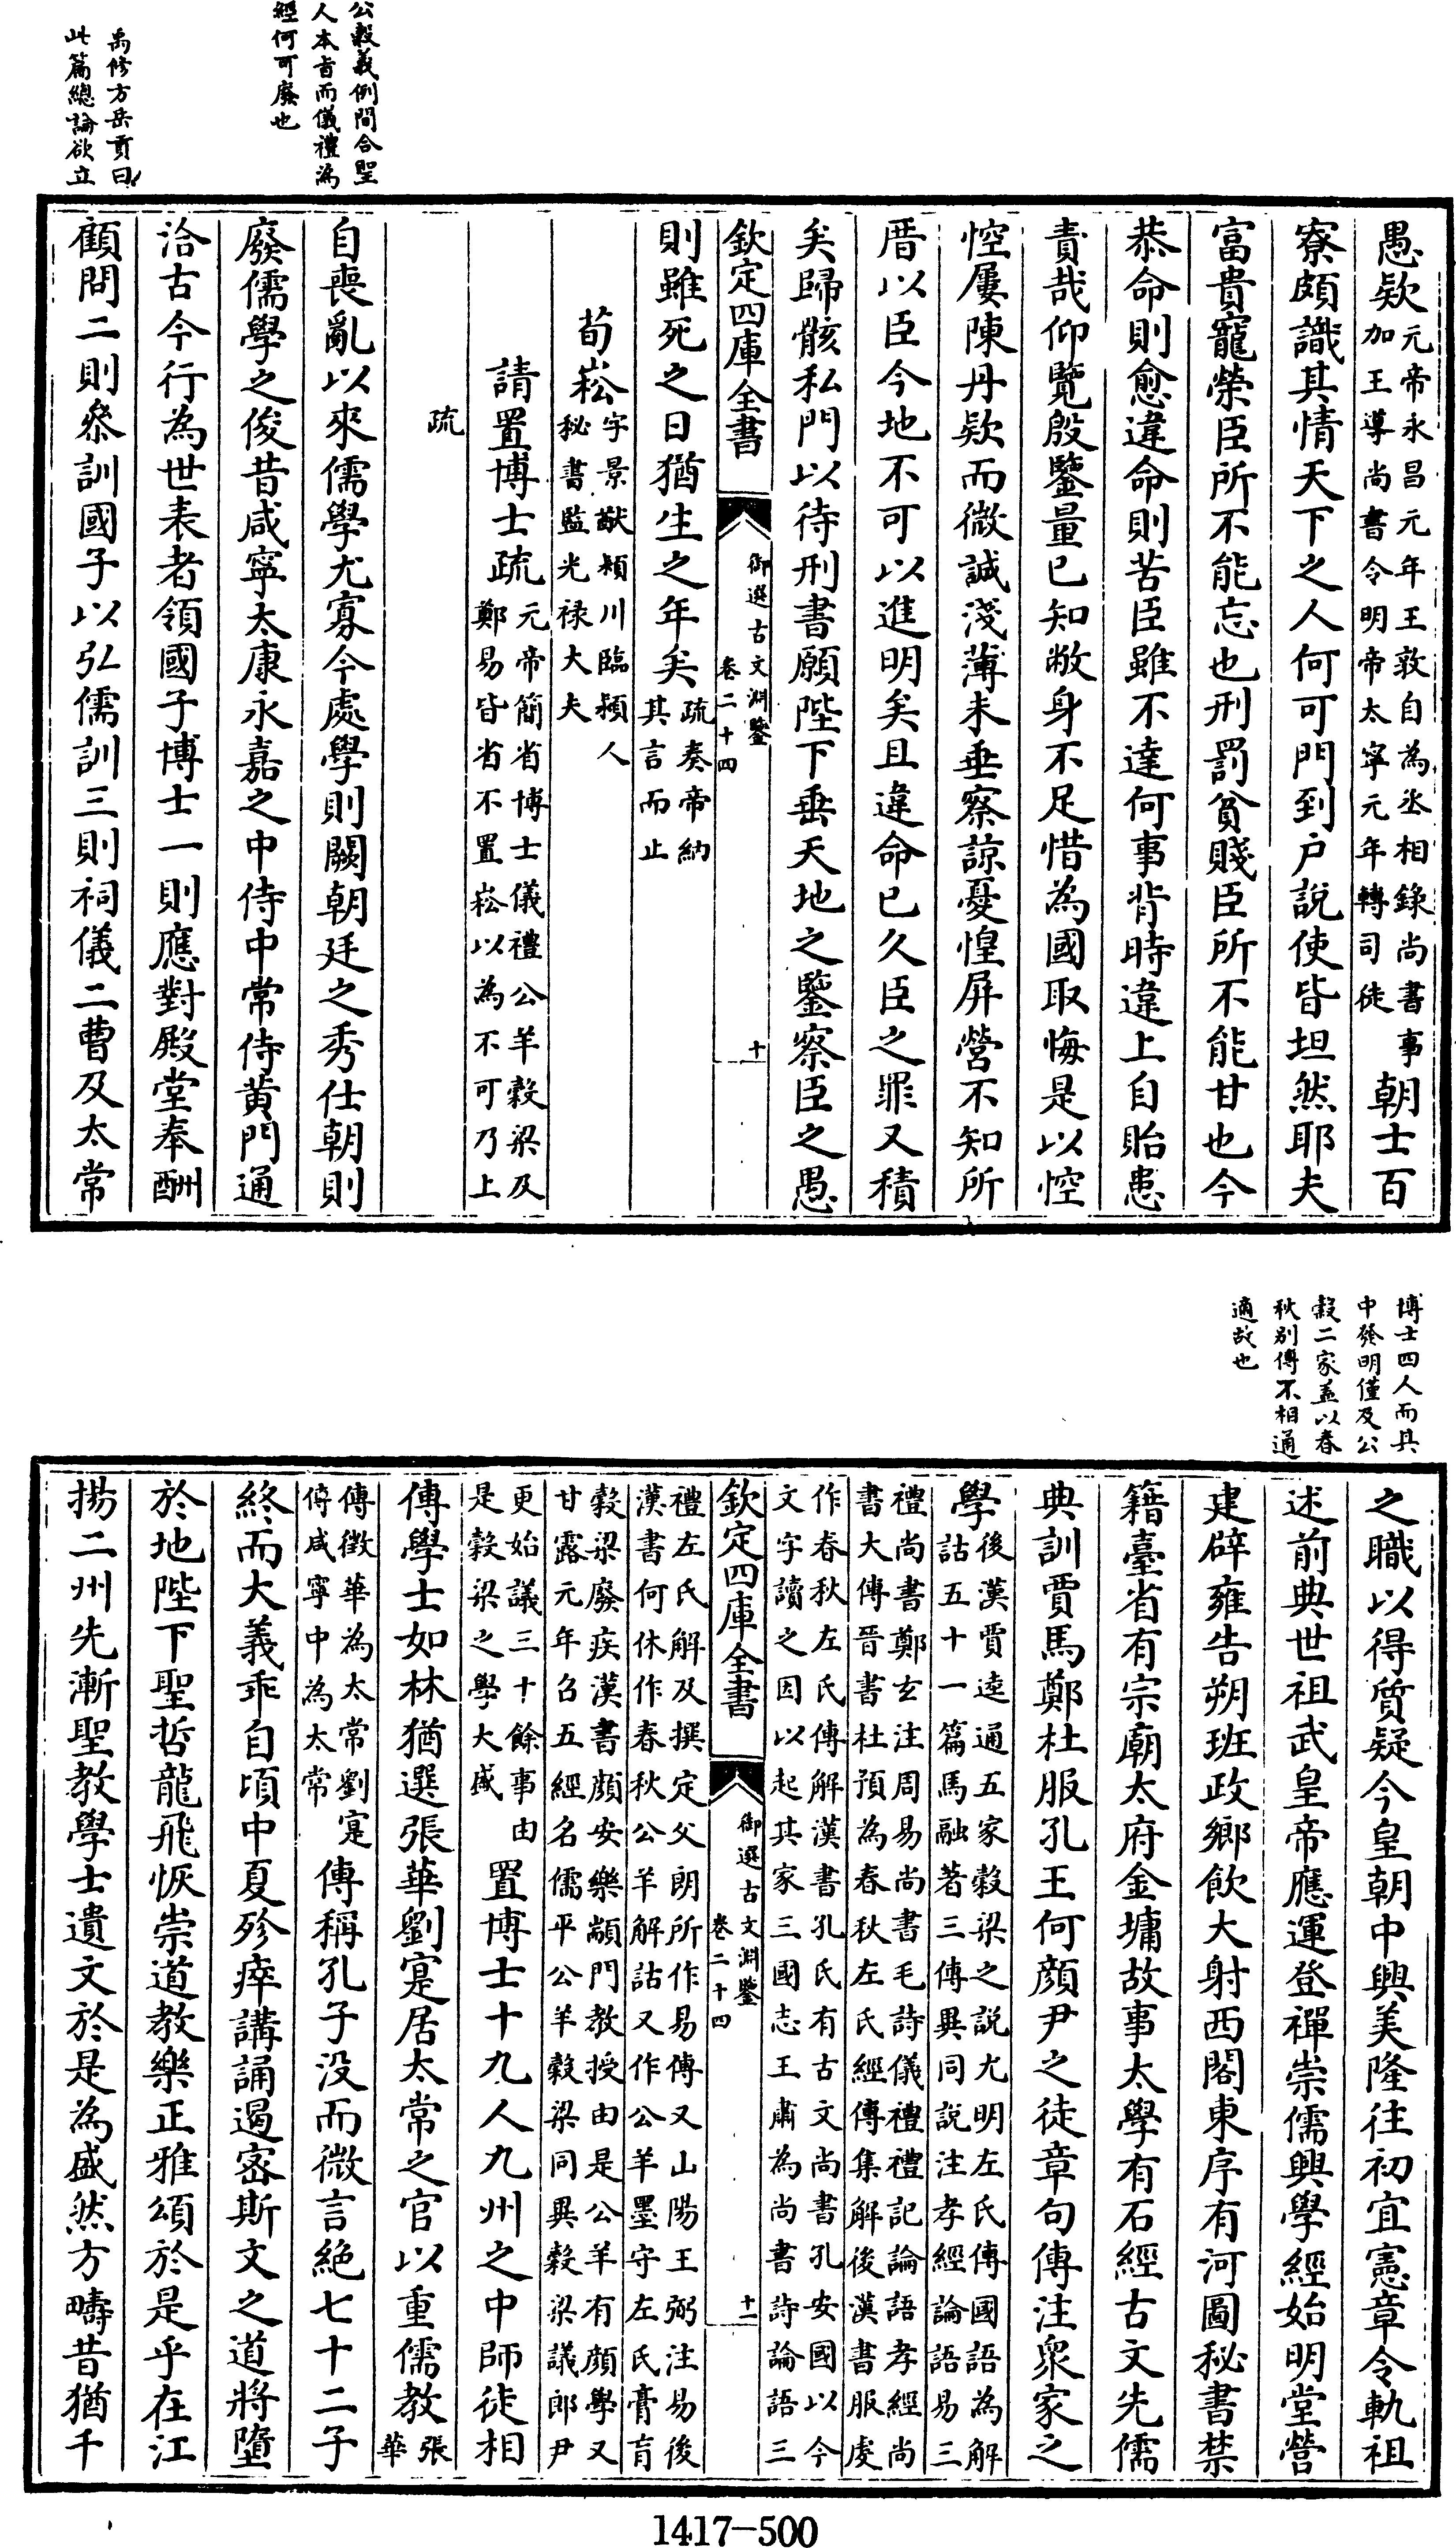 公穀義例間合聖
人本旨而儀禮為
經何可廢也
禹修方岳貢曰
此篇總論欲立
愚欵元帝永昌元年王敦自為丞相錄尚書事
加王導尚書令明帝太寧元年轉司徒朝士百
寮頗識其情天下之人何可門到户說使皆坦然耶夫
富貴寵榮臣所不能忘也刑罰貧賤臣所不能甘也今
恭命則愈違命則苦臣雖不達何事背時違上自貽患
責哉仰覽殷鑒量已知敝身不足惜為國取悔是以悾
悾屢陳丹欵而微誠淺薄未垂察諒憂惶屏營不知所
厝以臣今地不可以進明矣且違命已久臣之罪又積
矣歸骸私門以待刑書願陛下垂天地之鑒察臣之愚
欽定四庫全書
御選古文淵鑒
卷二十四
十
則雖死之日猶生之年矣疏奏帝納
其言而止
荀崧字景猷潁川臨潁人
秘書監光禄大夫
請置博士疏元帝簡省博士儀禮公羊穀梁及
鄭易皆省不置崧以為不可乃上
疏
自喪亂以來儒學尤寡今處學則闕朝廷之秀仕朝則
廢儒學之俊昔咸寧太康永嘉之中侍中常侍黄門通
洽古今行為世表者領國子博士一則應對殿堂奉酬
顧問二則叅訓國子以弘儒訓三則祠儀二曹及太常
博士四人而其
中發明僅及公
穀二家蓋以春
秋别傳不相通
適故也
之職以得質疑今皇朝中興美隆往初宜憲章令軌祖
述前典世祖武皇帝應運登禪崇儒興學經始明堂營
建辟雍告朔班政鄉飲大射西閣東序有河圖秘書禁
籍臺省有宗廟太府金墉故事太學有石經古文先儒
典訓賈馬鄭杜服孔王何顔尹之徒章句傳注衆家之
學後漢賈逵通五家穀梁之說尤明左氏傳國語為解
詁五十一篇馬融著三傳異同說注孝經論語易三
禮尚書鄭玄注周易尚書毛詩儀禮禮記論語孝經尚
書大傳晉書杜預為春秋左氏經傳集解後漢書服虔
作春秋左氏傳解漢書孔氏有古文尚書孔安國以今
文字讀之因以起其家三國志王肅為尚書詩論語三
欽定四庫全書
御選古文淵鑒
卷二十四
十一
禮左氏解及撰定父朗所作易傳又山陽王弼注易後
漢書何休作春秋公羊解詁又作公羊墨守左氏膏肓
穀梁廢疾漢書顔安樂顓門教授由是公羊有顔學又
甘露元年召五經名儒平公羊穀梁同異穀梁議郎尹
更始議三十餘事由
是穀梁之學大盛置博士十九人九州之中師徒相
傳學士如林猶選張華劉寔居太常之官以重儒教張
華
傳徵華為太常劉寔
傳咸寧中為太常傳稱孔子没而微言絕七十二子
終而大義乖自頃中夏殄瘁講誦遏密斯文之道將墮
於地陛下聖哲龍飛恢崇道教樂正雅頌於是乎在江
揚二州先漸聖教學士遺文於是為盛然方疇昔猶千
1417-500